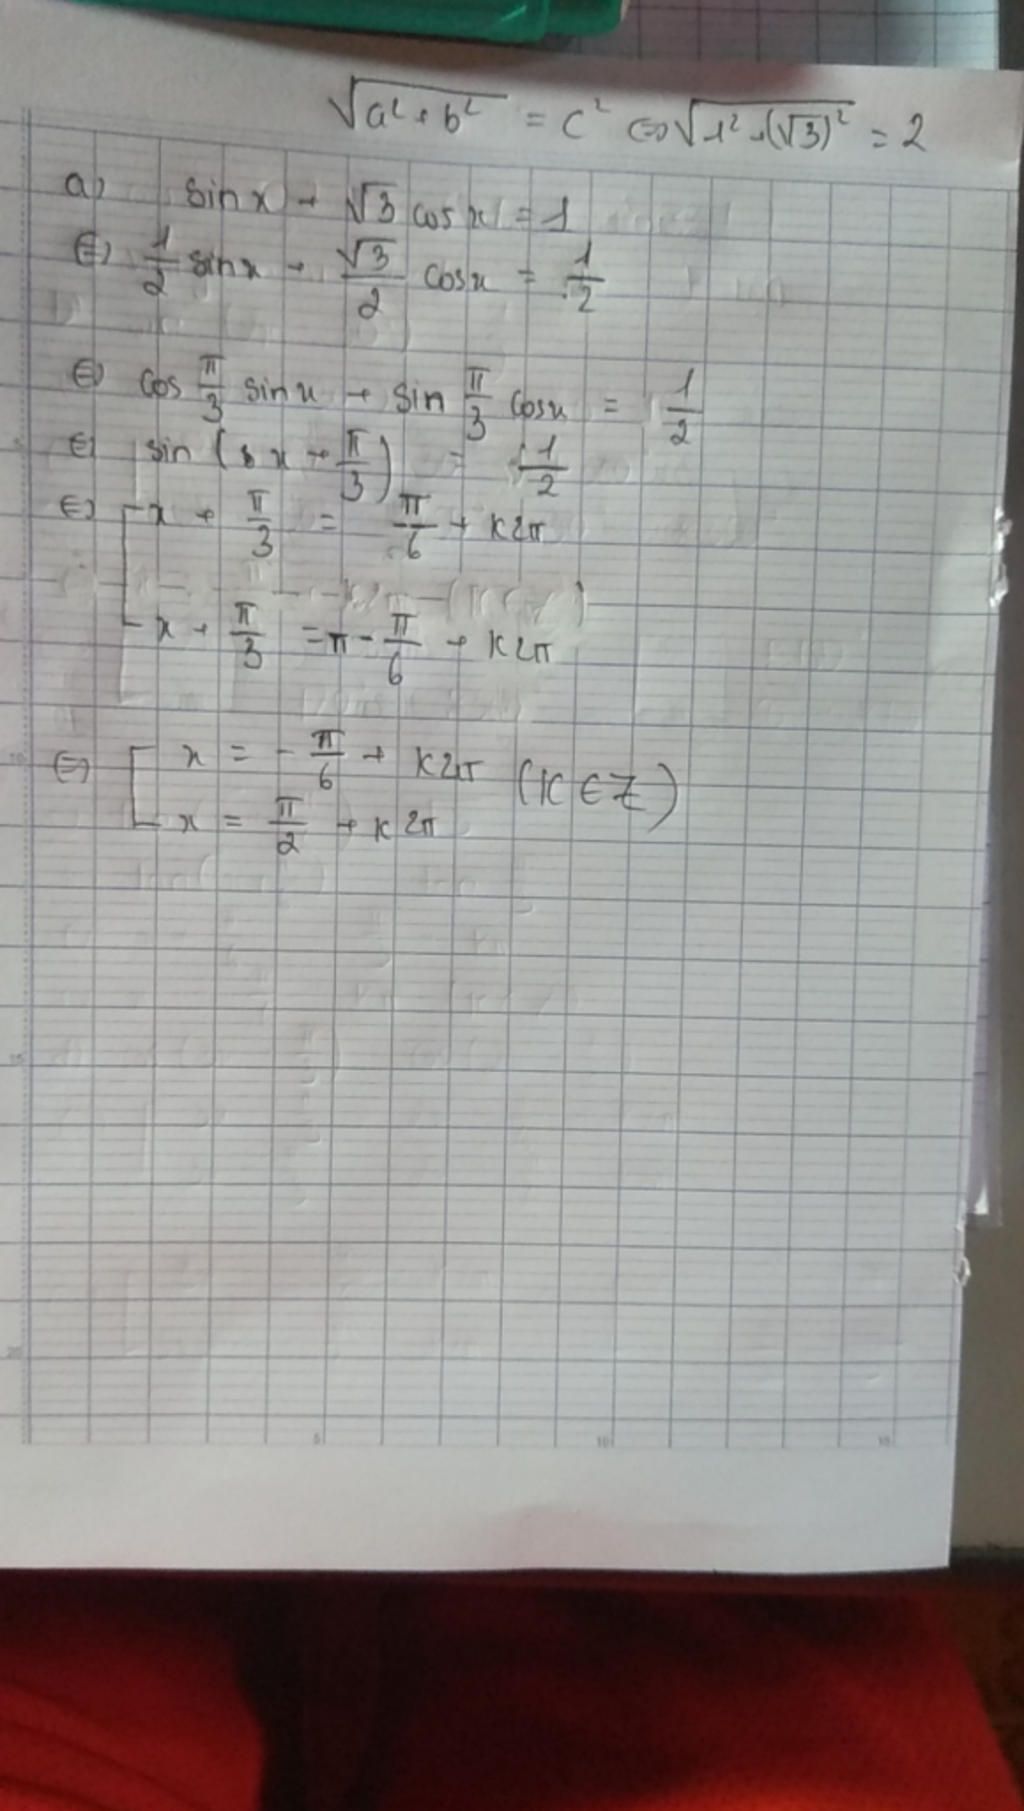 √(a² + b²) = c² ⇔ √(1² + (√3)²) = 2
a) sin x + √3 cos x = 1
⇔ 1/2 sin x + √3/2 cos x = 1/2
⇔ cos π/3 sin x + sin π/3 cos x = 1/2
⇔ sin (x + π/3) = 1/2
⇔ [ x + π/3 = π/6 + k2π
x + π/3 = π - π/6 + k2π
⇔ [ x = -π/6 + k2π (k ∈ Z)
x = π/2 + k2π